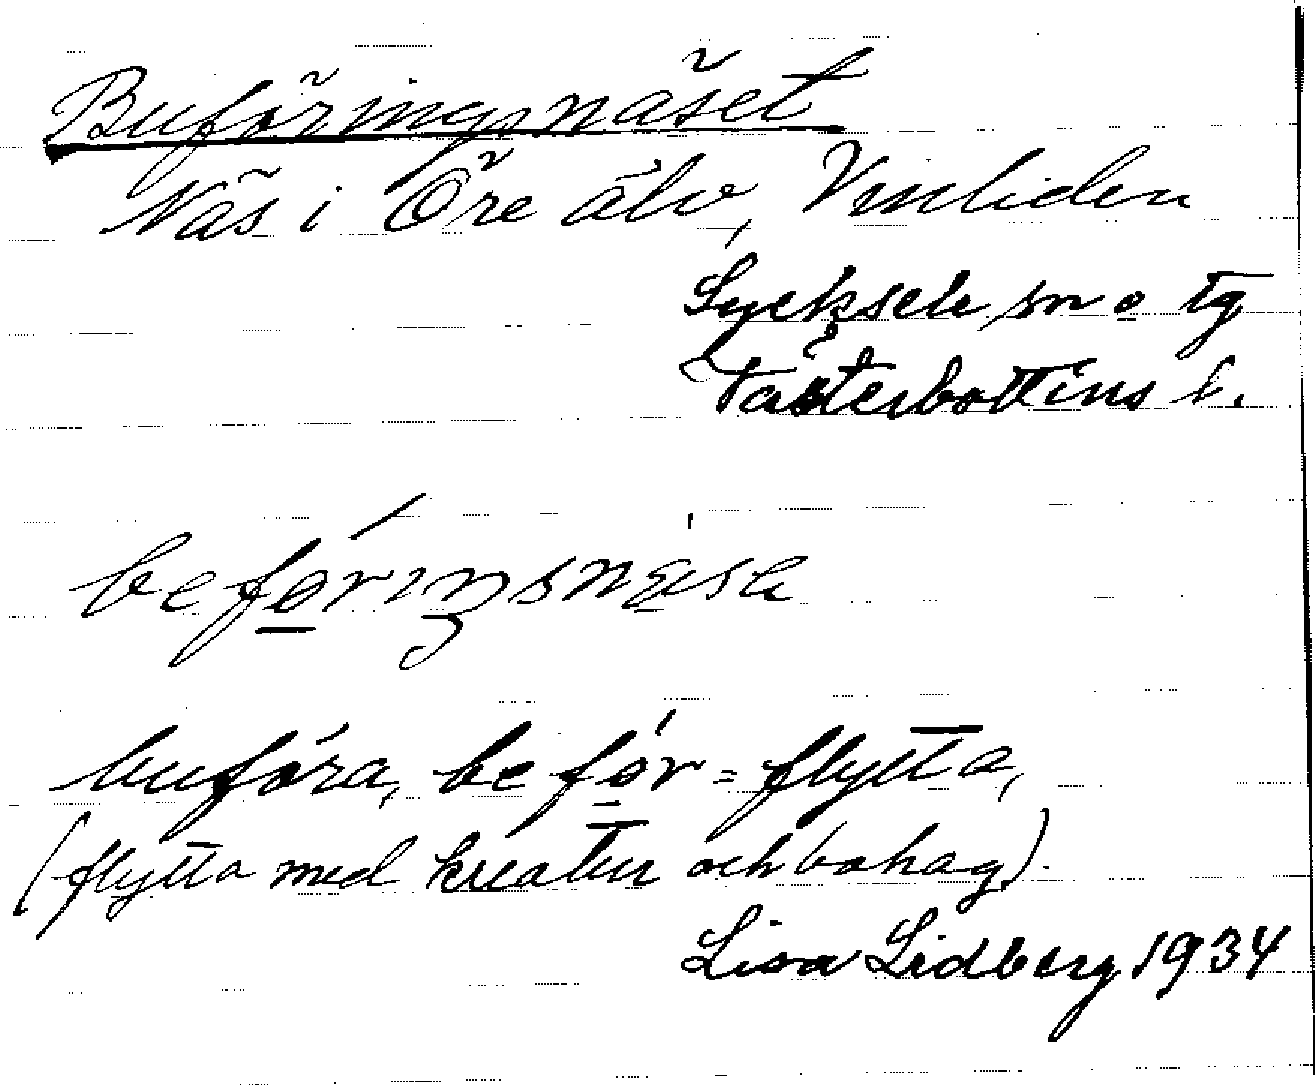 Buföringsnäset
Näs i Öre älv, Vinliden
Lycksele sn o tg
Västerbottens l.
beføriŋsnæisæ
buföra, befør = flytta,
(flytta med kreatur och bohag).
Lisa Lidberg 1934